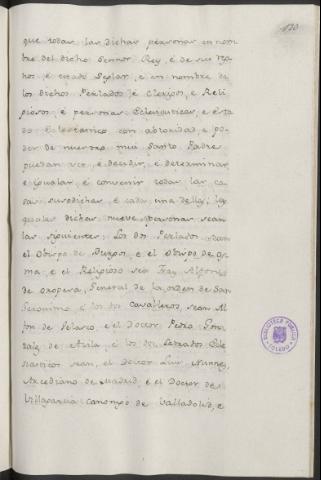 170
que todas las dichas personas en nom
bre del dicho Sennor Rey, é de sus Rg
nos, é estado Seglar, é en nombre de
los dichos Perlados é Clerigos, é Reli
giosos é personas Eclesiasticas, é esta
do Eclesiastico con abtoridad, e po
der de nuestro mui Santo Padre
puedan ver, é decidir, é determinar
é igualar, é convenir todas las ca
sas susodichas é cada una dellas, las
quales dichas nueve personas sean
las siguientes: Los dos Perlados sean
el Obispo de Burgos, e el Obispo de Os
ma, é el Religioso sea Fray Alfonso
de Oropesa, General de la orden de San
Geronimo é los dos Cavalleros sean Al
fon de Velasco, é el Doctor Pedro Gon
zalez de Avila, é los dos Letrados Ecle
siasticos sean, el Doctor Luis Nunnez
Arcediano de Madrid, é el Doctor de
Villagarcia Canonigo de Valladolid, é
BIBLIOTECA PUBLICA
TOLEDO